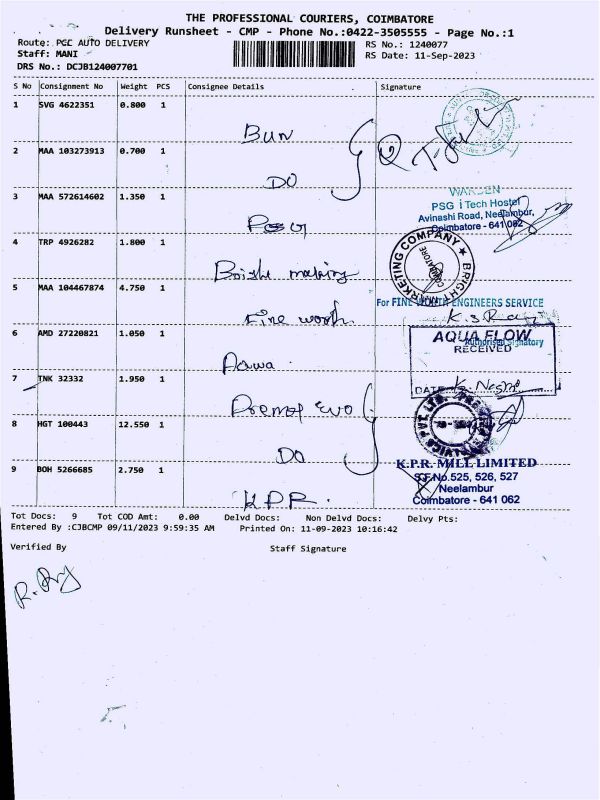 THE PROFESSIONAL COURIERS, COIMBATORE
Delivery Runsheet - CMP - Phone No.:0422-3505555 - Page No.:1
Route: PGC AUTO DELIVERY
RS No.: 1240077
Staff: MANI
RS Date: 11-Sep-2023
DRS No.: DCJB124007701
S No Consignment No Weight PCS Consignee Details Signature
1 SVG 4622351 0.800 1
Bun
2 MAA 103273913 0.700 1
DO
3 MAA 572614602 1.350 1
WARDEN
PSG i Tech Hostel
Avinashi Road, Neelambur,
Coimbatore - 641 062
4 TRP 4926282 1.800 1
MARKETING COMPANY ★ BRIGHT
COIMBATORE
5 MAA 104467874 4.750 1
Fine worth
For FINE WORTH ENGINEERS SERVICE
K.S.
Authorised Signatory
6 AMD 27220821 1.050 1
AQUA FLOW
RECEIVED
DATE
7 TNK 32332 1.950 1
8 HGT 100443 12.550 1
DO
9 BOH 5266685 2.750 1
KPR.
K.P.R. MILL LIMITED
S.F.No.525, 526, 527
Neelambur
Coimbatore - 641 062
Tot Docs: 9 Tot COD Amt: 0.00 Delvd Docs: Non Delvd Docs: Delvy Pts:
Entered By :CJBCMP 09/11/2023 9:59:35 AM Printed On: 11-09-2023 10:16:42
Verified By
Staff Signature